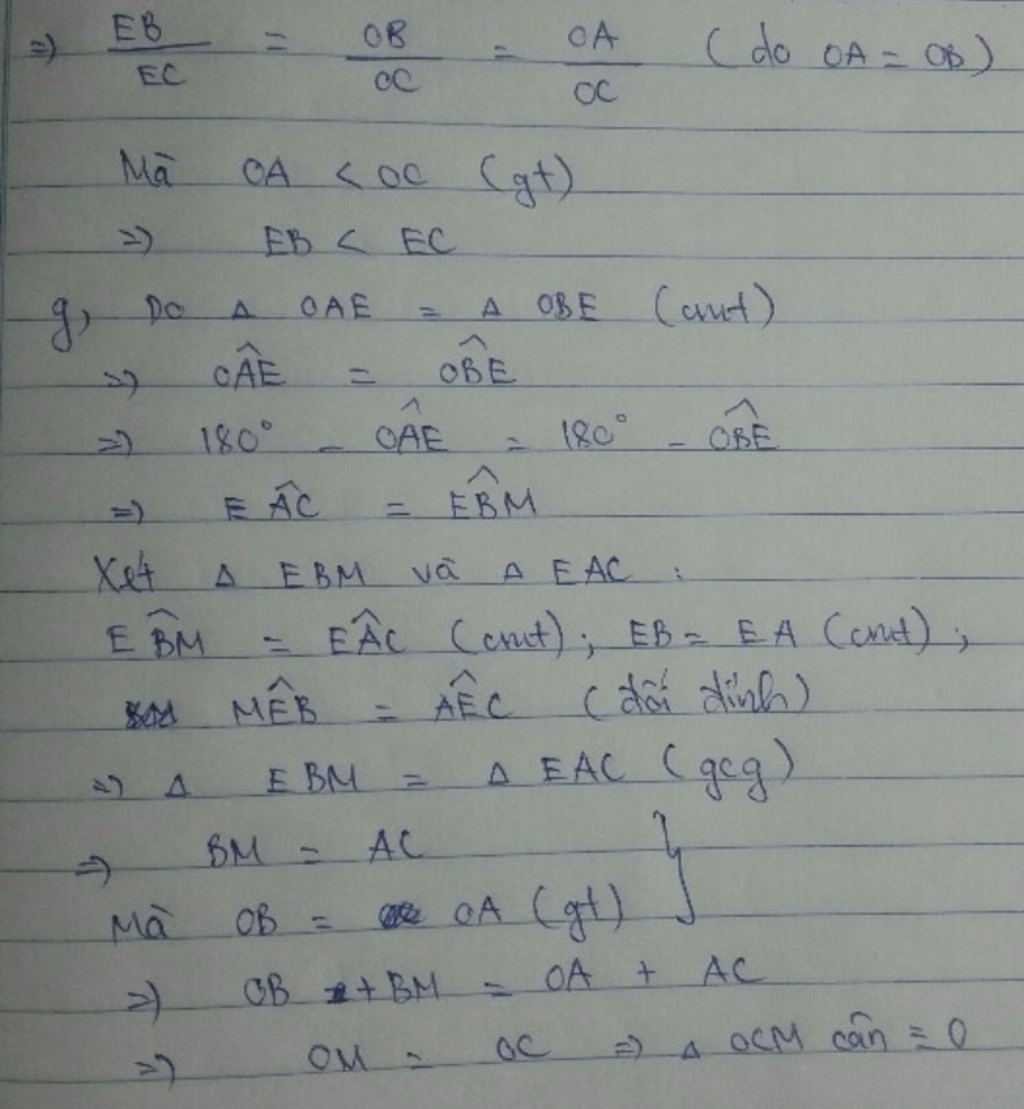 ⇒ EB/EC = OB/OC = OA/OC (do OA = OB)
Mà OA < OC (gt)
⇒ EB < EC
g, Do Δ OAE = Δ OBE (cmt)
⇒ OÂE = OB̂E
⇒ 180° - OÂE = 180° - OB̂E
⇒ EÂC = EB̂M
Xét Δ EBM và Δ EAC :
EB̂M = EÂC (cmt) ; EB = EA (cmt) ;
MÊB = AÊC (đối đỉnh)
⇒ Δ EBM = Δ EAC (gcg)
⇒ BM = AC
Mà OB = OA (gt)
⇒ OB + BM = OA + AC
⇒ OM = OC ⇒ Δ OCM cân ≡ O